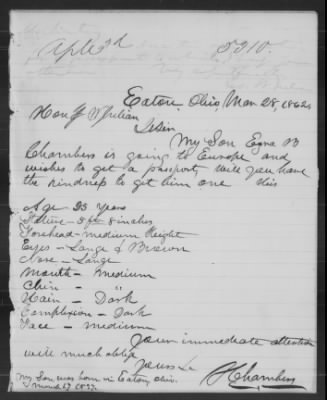 Apl 3d 5910.
Eaton, Ohio, Mar 28, 1862
Hon G W Julian
Dr Sir
My Son Ezra B
Chambers is going to Europe and
wishes to get a passport, will you have
the kindness to get him one His
Age 25 Years
Stature - 5 ft 8 inches
Forehead - medium Height
Eyes - Large & Brown
Nose - Large
Mouth - Medium
Chin - "
Hair - Dark
Complexion - Dark
Face - medium
Your immediate attention
will much oblige
Yours &c
Chambers
My Son was born in Eaton, Ohio,
March 1837.